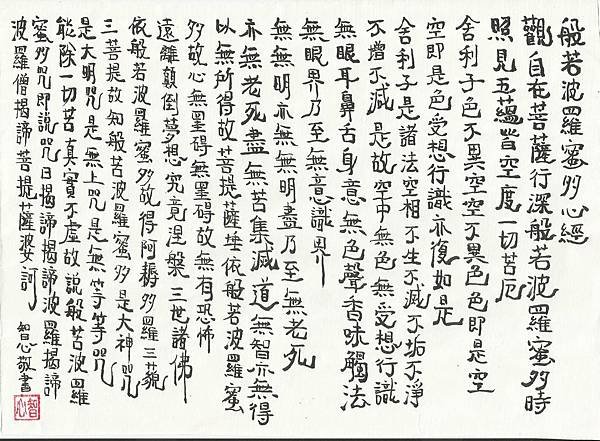 般若波羅蜜多心經
觀自在菩薩行深般若波羅蜜多時
照見五蘊皆空度一切苦厄
舍利子色不異空空不異色色即是空
空即是色受想行識亦復如是
舍利子是諸法空相不生不滅不垢不淨
不增不減是故空中無色無受想行識
無眼耳鼻舌身意無色聲香味觸法
無眼界乃至無意識界
無無明亦無無明盡乃至無老死
亦無老死盡無苦集滅道無智亦無得
以無所得故菩提薩埵依般若波羅蜜
多故心無罣碍無罣碍故無有恐怖
遠離顛倒夢想究竟涅槃三世諸佛
依般若波羅蜜多故得阿耨多羅三藐
三菩提故知般若波羅蜜多是大神咒
是大明咒是無上咒是無等等咒
能除一切苦真實不虛故說般若波羅
蜜多咒即說咒曰揭諦揭諦波羅揭諦
波羅僧揭諦菩提薩婆訶
智心敬書
智心